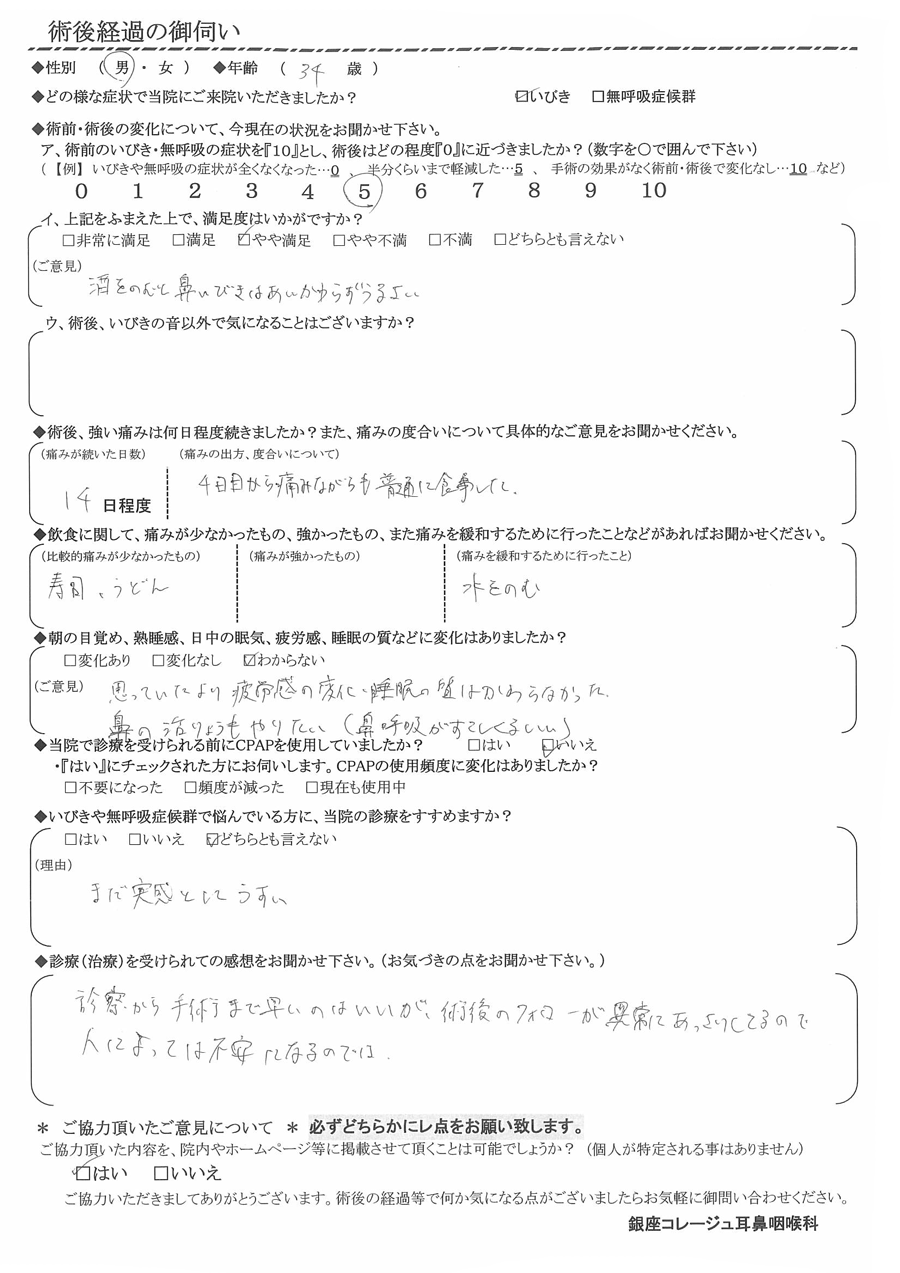 術後経過の御伺い
◆性別 （ 男 ・ 女 ） ◆年齢 （ 34 歳 ）
◆どの様な症状で当院にご来院いただきましたか？ ☑いびき □無呼吸症候群
◆術前・術後の変化について、今現在の状況をお聞かせ下さい。
ア、術前のいびき・無呼吸の症状を『10』とし、術後はどの程度『0』に近づきましたか？（数字を○で囲んで下さい）
（【例】 いびきや無呼吸の症状が全くなくなった…0 、 半分くらいまで軽減した…5 、 手術の効果がなく術前・術後で変化なし…10 など）
0 1 2 3 4 5 6 7 8 9 10
イ、上記をふまえた上で、満足度はいかがですか？
□非常に満足 □満足 ☑やや満足 □やや不満 □不満 □どちらとも言えない
（ご意見）
酒をのむと鼻いびきはあいかわらずうるさい
ウ、術後、いびきの音以外で気になることはございますか？
◆術後、強い痛みは何日程度続きましたか？また、痛みの度合いについて具体的なご意見をお聞かせください。
（痛みが続いた日数） （痛みの出方、度合いについて）
14 日程度 4日目から痛みながらも普通に食事した。
◆飲食に関して、痛みが少なかったもの、強かったもの、また痛みを緩和するために行ったことなどがあればお聞かせください。
（比較的痛みが少なかったもの） （痛みが強かったもの） （痛みを緩和するために行ったこと）
寿司、うどん 水をのむ
◆朝の目覚め、熟睡感、日中の眠気、疲労感、睡眠の質などに変化はありましたか？
□変化あり □変化なし ☑わからない
（ご意見） 思っていたより疲労感の変化・睡眠の質はかわらなかった。
鼻の治りょうもやりたい（鼻呼吸がすこしくるしい）
◆当院で診療を受けられる前にCPAPを使用していましたか？ □はい ☑いいえ
・『はい』にチェックされた方にお伺いします。CPAPの使用頻度に変化はありましたか？
□不要になった □頻度が減った □現在も使用中
◆いびきや無呼吸症候群で悩んでいる方に、当院の診療をすすめますか？
□はい □いいえ ☑どちらとも言えない
（理由）
まだ実感としてうすい
◆診療（治療）を受けられての感想をお聞かせ下さい。（お気づきの点をお聞かせ下さい。）
診察から手術まで早いのはいいが、術後のフォローが異常にあっさりしてるので
人によっては不安になるのでは.
＊ ご協力頂いたご意見について ＊ 必ずどちらかにレ点をお願い致します。
ご協力頂いた内容を、院内やホームページ等に掲載させて頂くことは可能でしょうか？ （個人が特定される事はありません）
☑はい □いいえ
ご協力いただきましてありがとうございます。術後の経過等で何か気になる点がございましたらお気軽に御問い合わせください。
銀座コレージュ耳鼻咽喉科